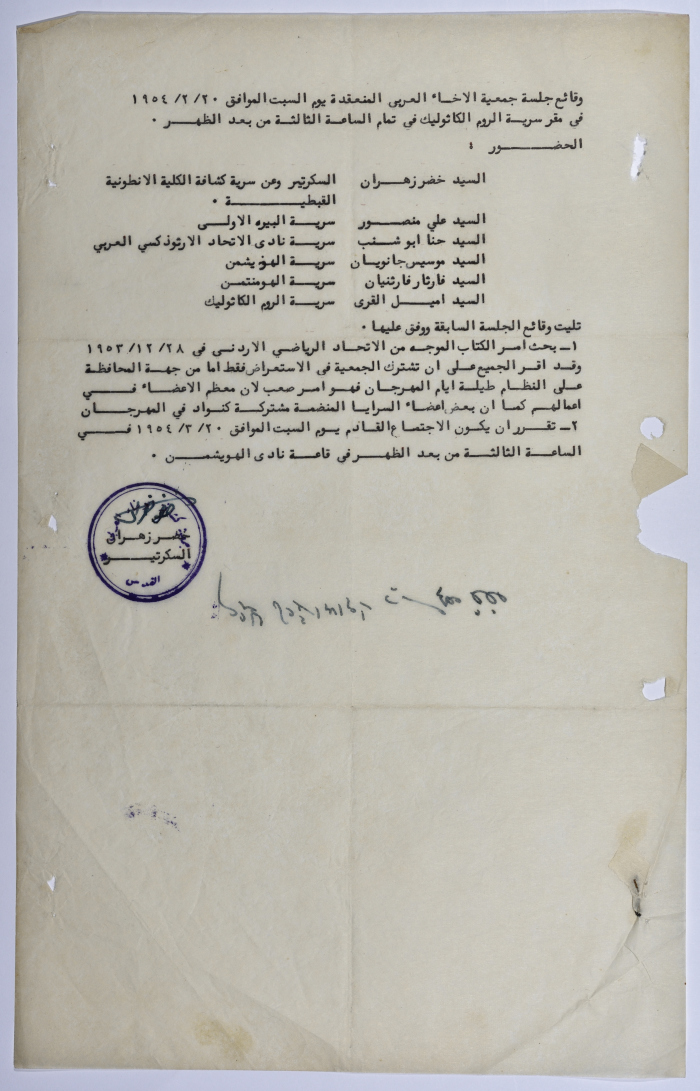 وقائع جلسة جمعية الاخاء العربي المنعقدة يوم السبت الموافق ٢٠/ ٢/ ١٩٥٤
في مقر سرية الروم الكاثوليك في تمام الساعة الثالثة من بعد الظهر ٠
الحضور :
السيد خضر زهران السكرتير وعن سرية كشافة الكلية الانطونية
القبطية ٠
السيد علي منصور سرية البيره الاولى
السيد حنا ابو شنب سرية نادى الاتحاد الارثوذكسي العربي
السيد موسيس جانويان سرية الهويشمن
السيد فارثار فارثنيان سرية الهومنتمن
السيد اميل القرى سرية الروم الكاثوليك
تليت وقائع الجلسة السابقة ووفق عليها ٠
١ــ بحث امر الكتاب الموجه من الاتحاد الرياضي الاردني في ٢٨/ ١٢/ ١٩٥٣
وقد اقر الجميع على ان تشترك الجمعية في الاستعراض فقط اما من جهة المحافظة
على النظام طيلة ايام المهرجان فهو امر صعب لان معظم الاعضاء في
اعمالهم كما ان بعض اعضاء السرايا المنضمة مشتركة كنواد في المهرجان
٢ــ تقرر ان يكون الاجتماع القادم يوم السبت الموافق ٢٠/ ٣/ ١٩٥٤ في
الساعة الثالثة من بعد الظهر في قاعة نادى الهويشمن ٠
خضر زهران
السكرتير
القدس